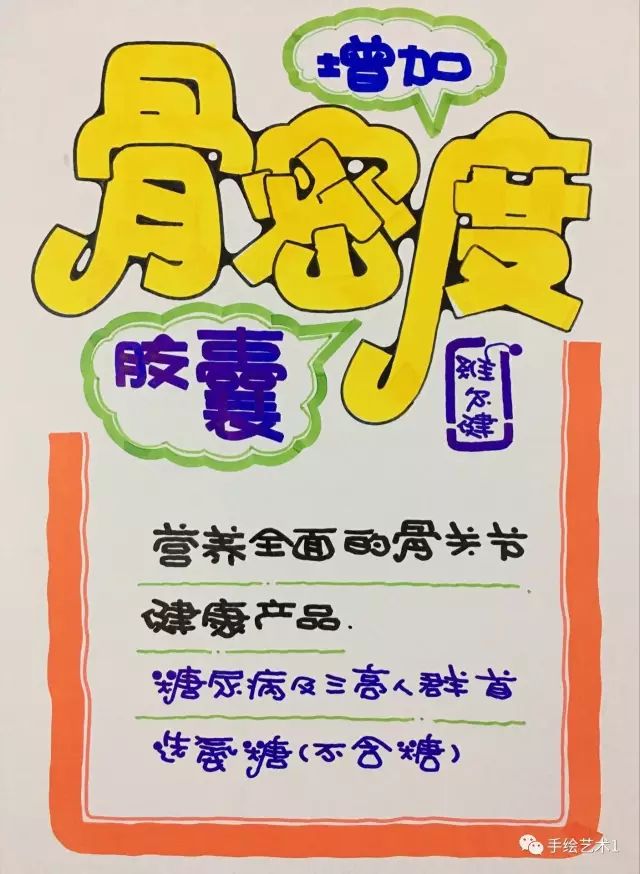 增加
骨密度
胶囊
维尔健
营养全面的骨关节
健康产品.
糖尿病及三高人群首
选氨糖(不含糖)
手绘艺术1